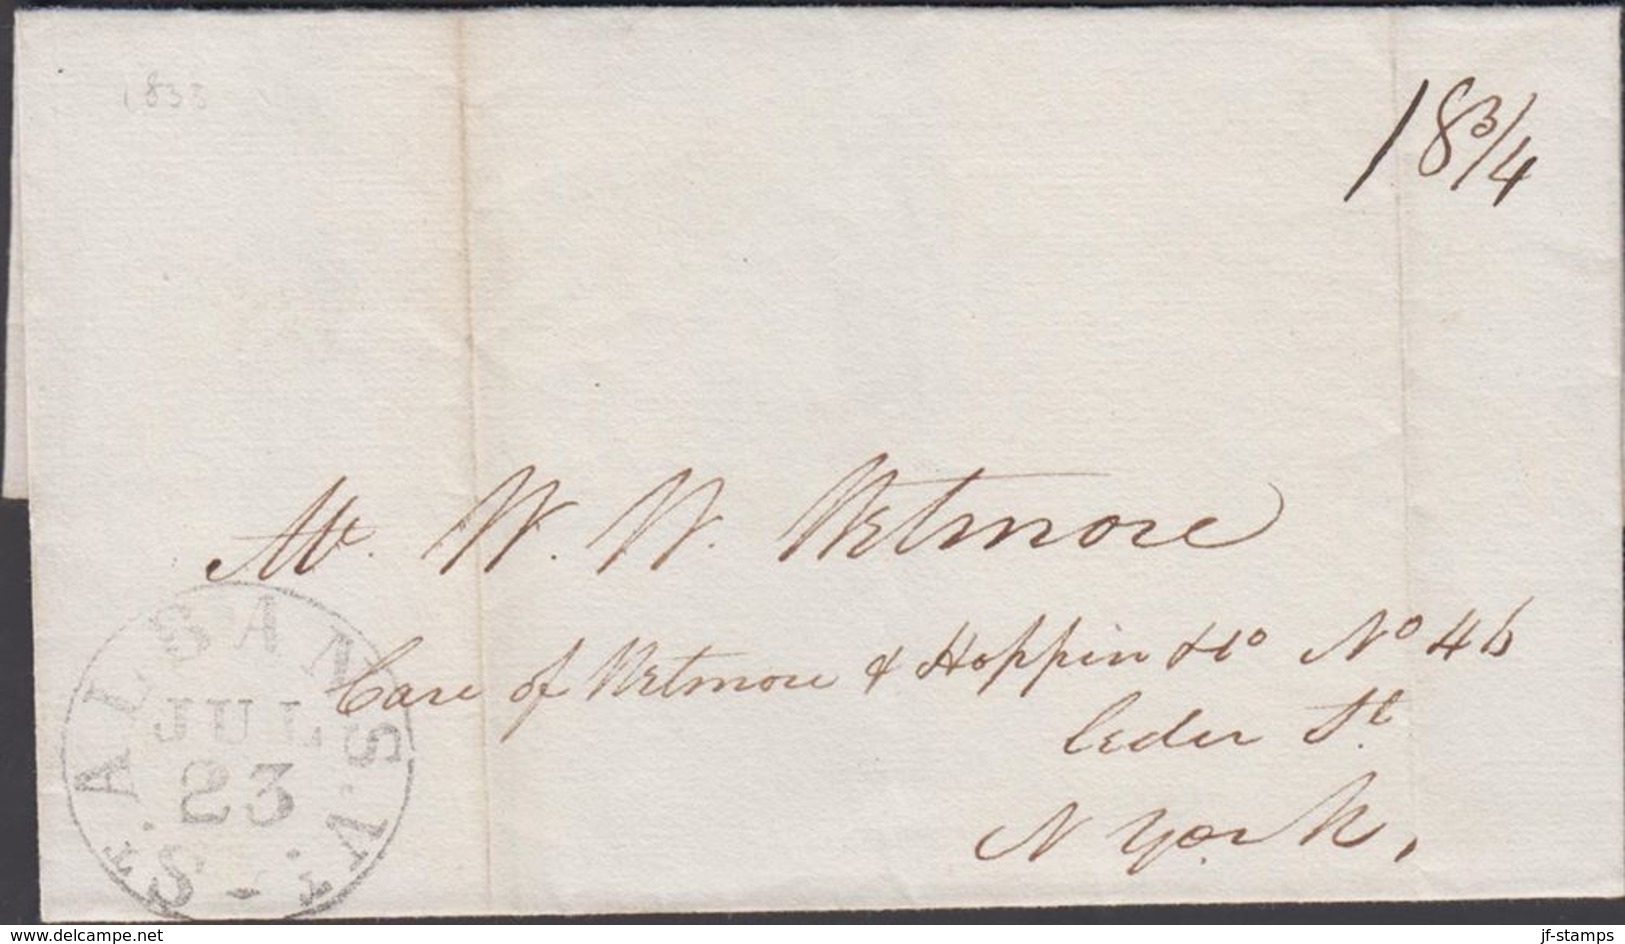 1835
18 3/4
Mr. W. W. Wetmore
Care of Wetmore & Hoppin & Co No 46
Ceder St
N York,
ST. ALBANS VT.
JUL
23
www.delcampe.net
jf-stamps